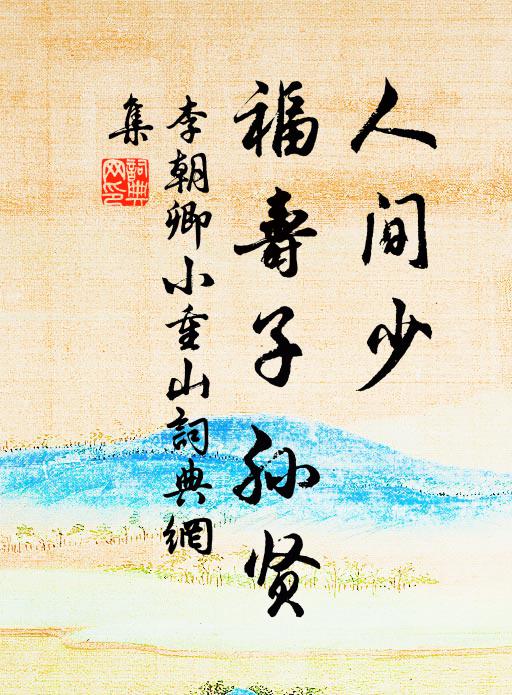 人间少
福寿子孙贤
李朝卿小重山词典網
集
詞典
网印